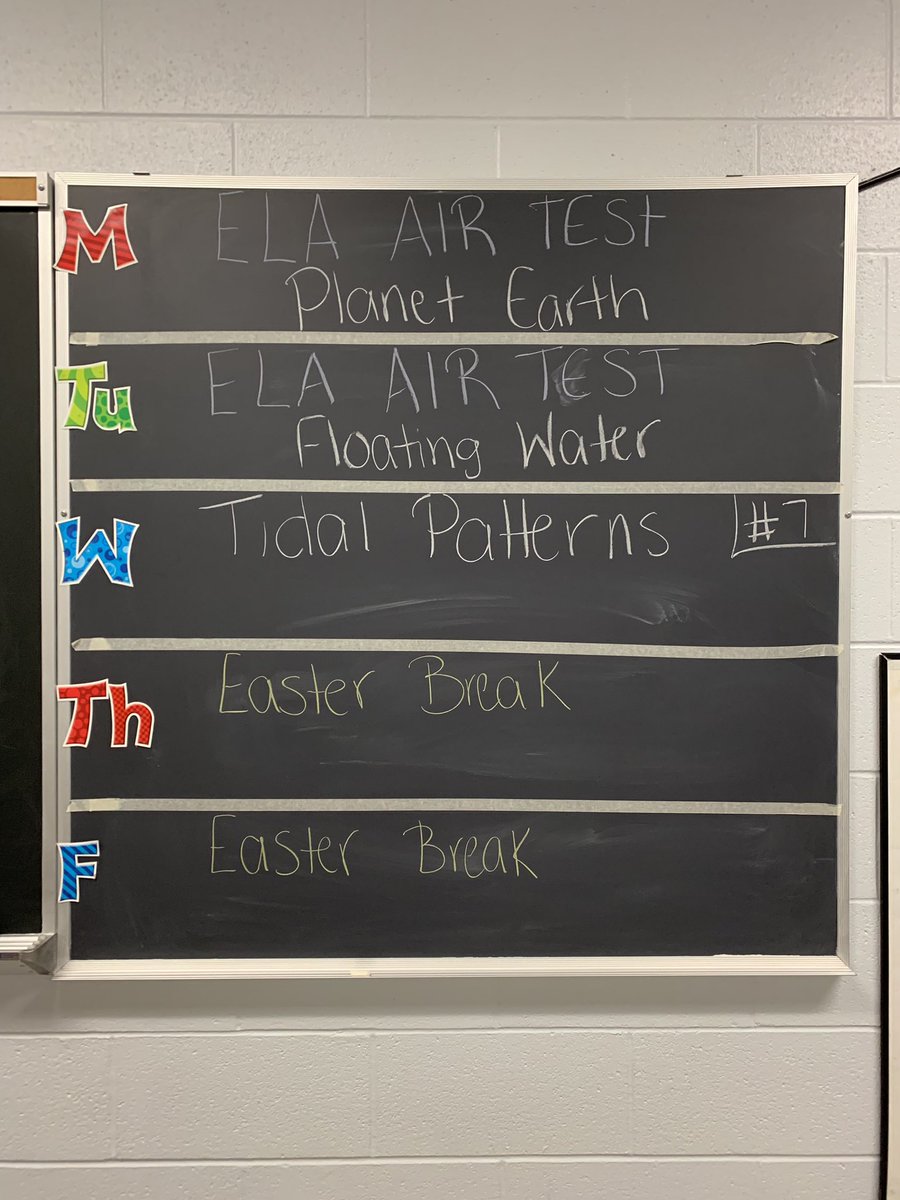 M
ELA AIR TEST
Planet Earth
Tu
ELA AIR TEST
Floating Water
W
Tidal Patterns #7
Th
Easter Break
F
Easter Break